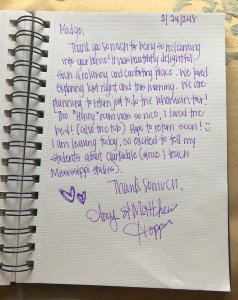 2/24/2018
Madge,
Thank you so much for being so welcoming
into your home! It was beautifully delightful
such a relaxing and comforting place. We loved
exploring last night and this morning. We are
planning to return just to do the
The "Honey" room was so nice, I loved the
bed! (also the tub) Hope to return soon! :)
I am leaving today, so excited to tell my
students about Clarksdale (since I teach
Mississippi studies).
Thanks so much,
St Matthew